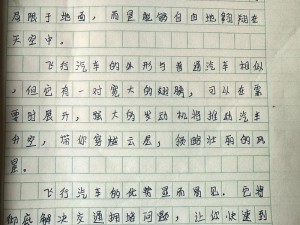 局限于地面，而是能够自由地翱翔在
天空中。
飞行汽车的外形与普通汽车相似
，但它有一对宽大的翅膀，可以在需
要时展开，强大的发动机将推动汽车
升空，带你穿越云层，领略壮丽的风
景。
飞行汽车的优势显而易见。它将
彻底解决交通拥堵问题，让你快速到